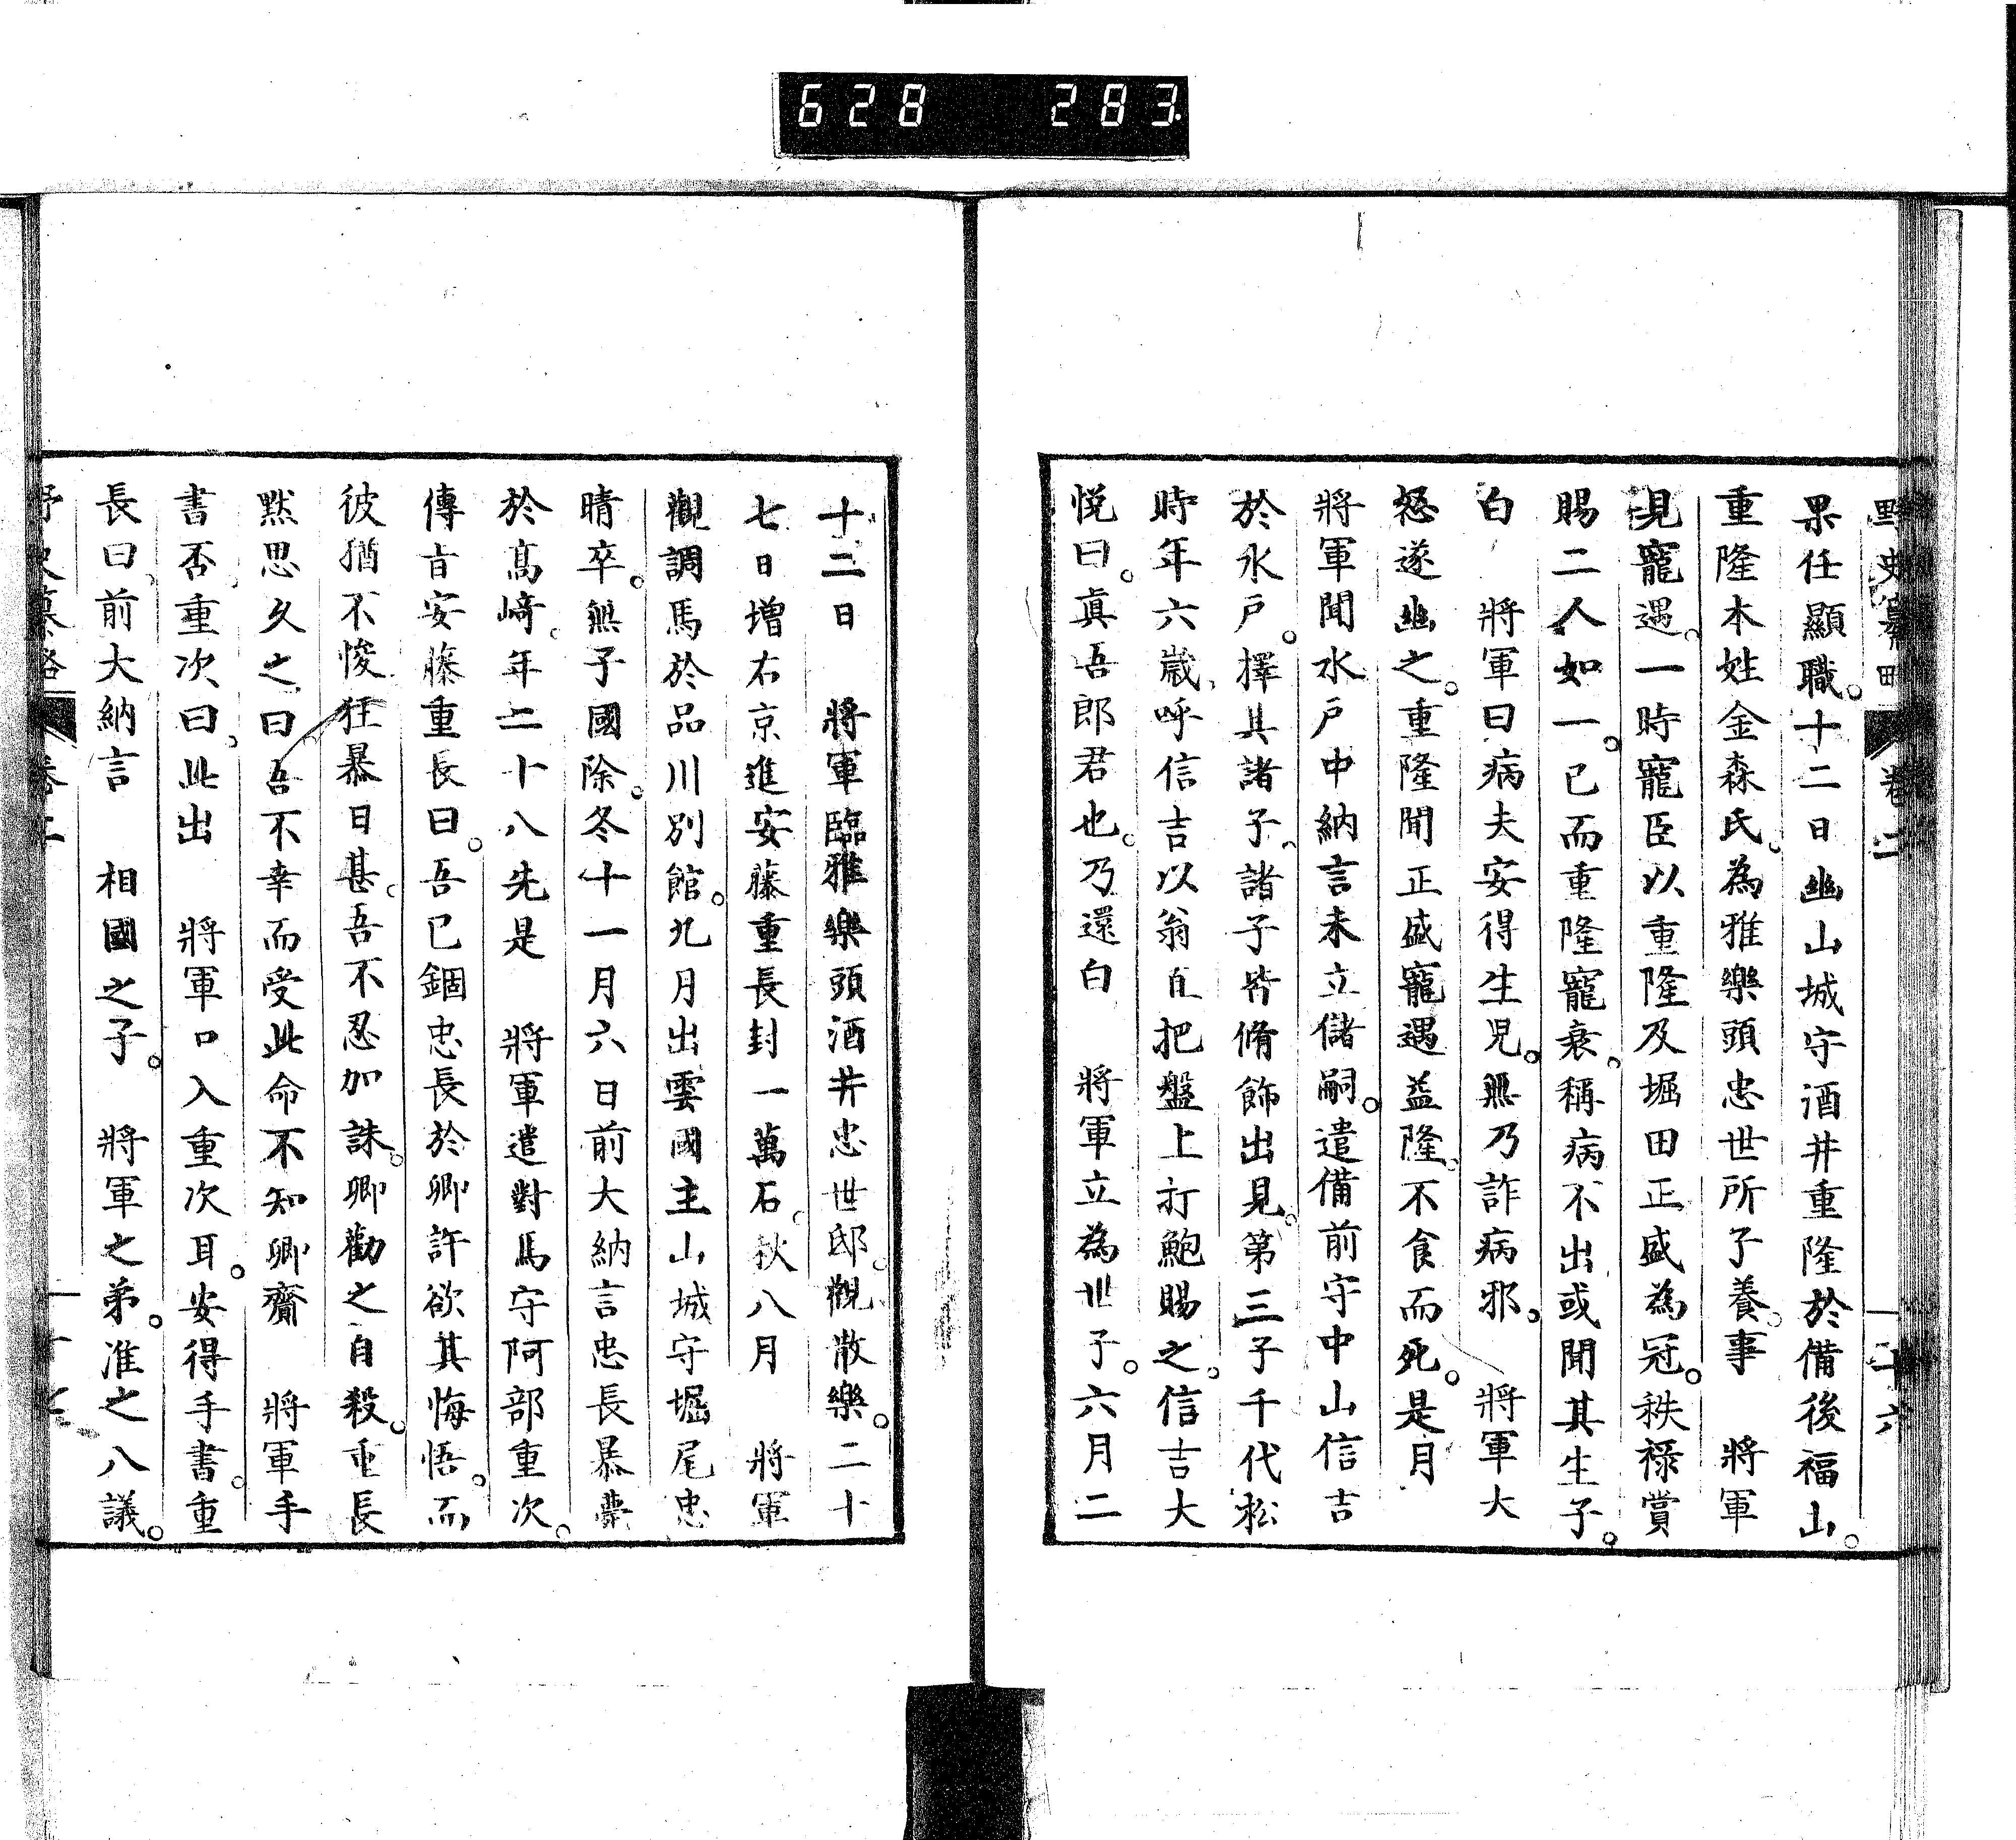 628 283
野史纂略 卷二 二十六
果任顯職。十二日幽山城守酒井重隆於備後福山。
重隆本姓金森氏。為雅樂頭忠世所子養。事 將軍
見寵遇。一時寵臣以重隆及堀田正盛為冠。秩祿賞
賜二人如一。已而重隆寵衰。稱病不出或聞其生子。
白 將軍曰病夫安得生兒。無乃詐病邪。 將軍大
怒遂幽之。重隆聞正盛寵遇益隆。不食而死。是月
將軍聞水戶中納言未立儲嗣。遣備前守中山信吉
於水戶。擇其諸子。諸子皆脩飾出見。第三子千代松
時年六歲。呼信吉以翁自把盤上打鮑賜之。信吉大
悦曰。真吾郎君也。乃還白 將軍立為世子。六月二
十二日 將軍臨雅樂頭酒井忠世邸。觀散樂。二十
七日增右京進安藤重長封一萬石。秋八月 將軍
觀調馬於品川別館。九月出雲國主山城守堀尾忠
晴卒。無子國除。冬十一月六日前大納言忠長暴薨
於高﨑。年二十八先是 將軍遣對馬守阿部重次
傳旨安藤重長曰。吾已錮忠長於卿許欲其悔悟。而
彼猶不悛狂暴日甚。吾不忍加誅。卿勸之自殺。重長
黙思久之曰。吾不幸而受此命不知卿齎 將軍手
書否。重次曰。此出 將軍口入重次耳。安得手書。重
長曰。前大納言 相國之子。 將軍之弟。准之八議。
野史纂略 卷二 二十七